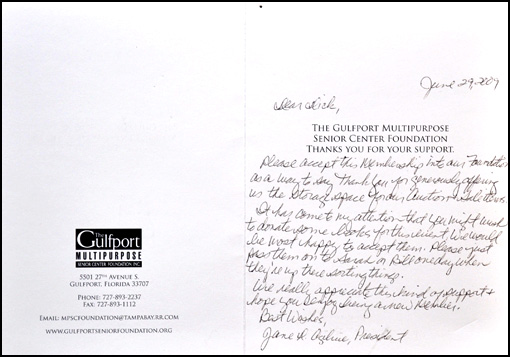 The
Gulfport
MULTIPURPOSE
SENIOR CENTER FOUNDATION INC.
5501 27TH AVENUE S.
GULFPORT, FLORIDA 33707
PHONE: 727-893-2237
FAX: 727-893-1112
EMAIL: MPSCFOUNDATION@TAMPABAY.RR.COM
WWW.GULFPORTSENIORFOUNDATION.ORG
June 29, 2009
Dear Dick,
THE GULFPORT MULTIPURPOSE
SENIOR CENTER FOUNDATION
THANKS YOU FOR YOUR SUPPORT.
Please accept this Membership into our Foundation
as a way to say Thank You for generously offering
us the storage space for our Auction
It has come to my attention that you might wish
to donate some books for this event. We would
be most happy to accept them. Please just
pass them on to Sarah or Bill one day when
they're up there sorting things.
We really appreciate this kind of support &
hope you enjoy being a new Member.
Best Wishes,
Jane President